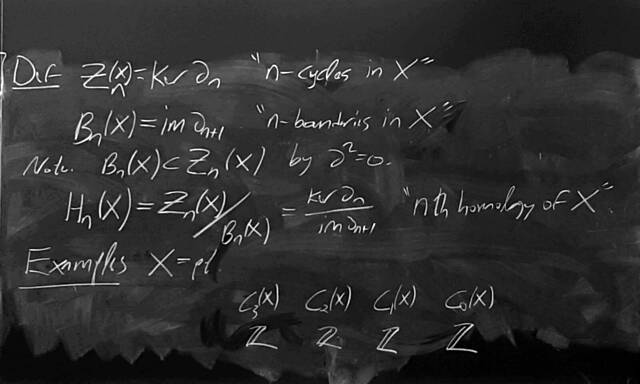 Def Zₙ(X) = Ker ∂ₙ "n-cycles in X"
Bₙ(X) = im ∂ₙ₊₁ "n-boundries in X"
Note. Bₙ(X) ⊂ Zₙ(X) by ∂² = 0.
Hₙ(X) = Zₙ(X)/Bₙ(X) = Ker ∂ₙ / im ∂ₙ₊₁ "nth homology of X".
Examples X = pt
C₃(X) C₂(X) C₁(X) C₀(X)
ℤ ℤ ℤ ℤ